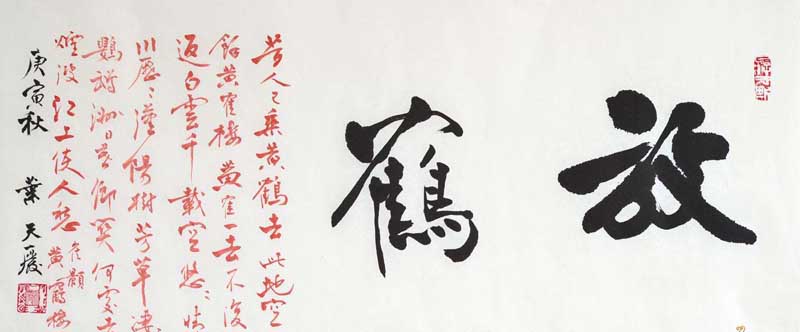 放鶴
昔人已乘黄鶴去此地空
餘黄鶴樓黄鶴一去不復
返白雲千載空悠〻晴
川歷〻漢陽樹芳草淒
鸚鵡洲日暮鄉關何處是
煙波江上使人愁 崔顥黄鶴樓
庚寅秋 葉天